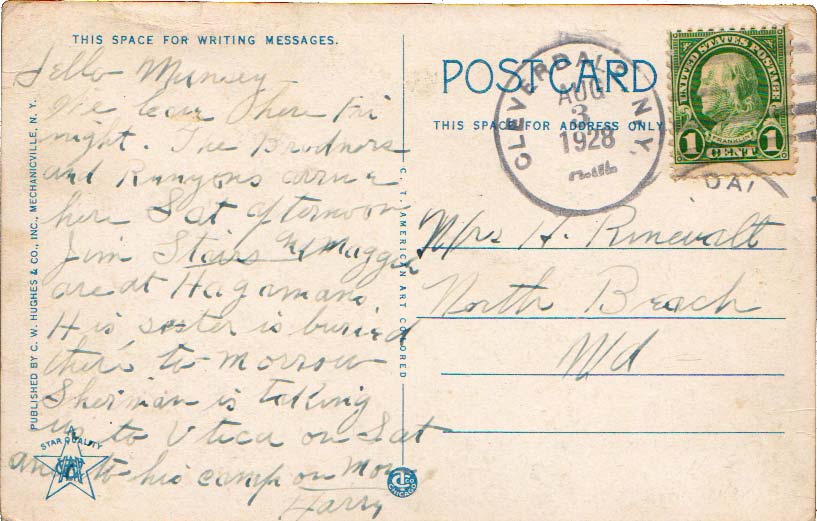 THIS SPACE FOR WRITING MESSAGES.
Hello Munsey
We leave here Fri
night. The Brodners
and Runyons arrive
here Sat afternoon
Jim Stairs and Maggie
are at Hagamans
His sister is buried
there to morrow
Sherman is taking
us to Utica on Sat
and to his camp on Mon
Harry
PUBLISHED BY C. W. HUGHES & CO., INC., MECHANICVILLE, N. Y.
STAR QUALITY
C. T. AMERICAN ART COLORED
CHICAGO
POST CARD
THIS SPACE FOR ADDRESS ONLY
CLEVERDALE N.Y.
AUG
3
1928
UNITED STATES POSTAGE
FRANKLIN
1 CENT 1
DAL
Mrs H. Rinevalt
North Beach
Md